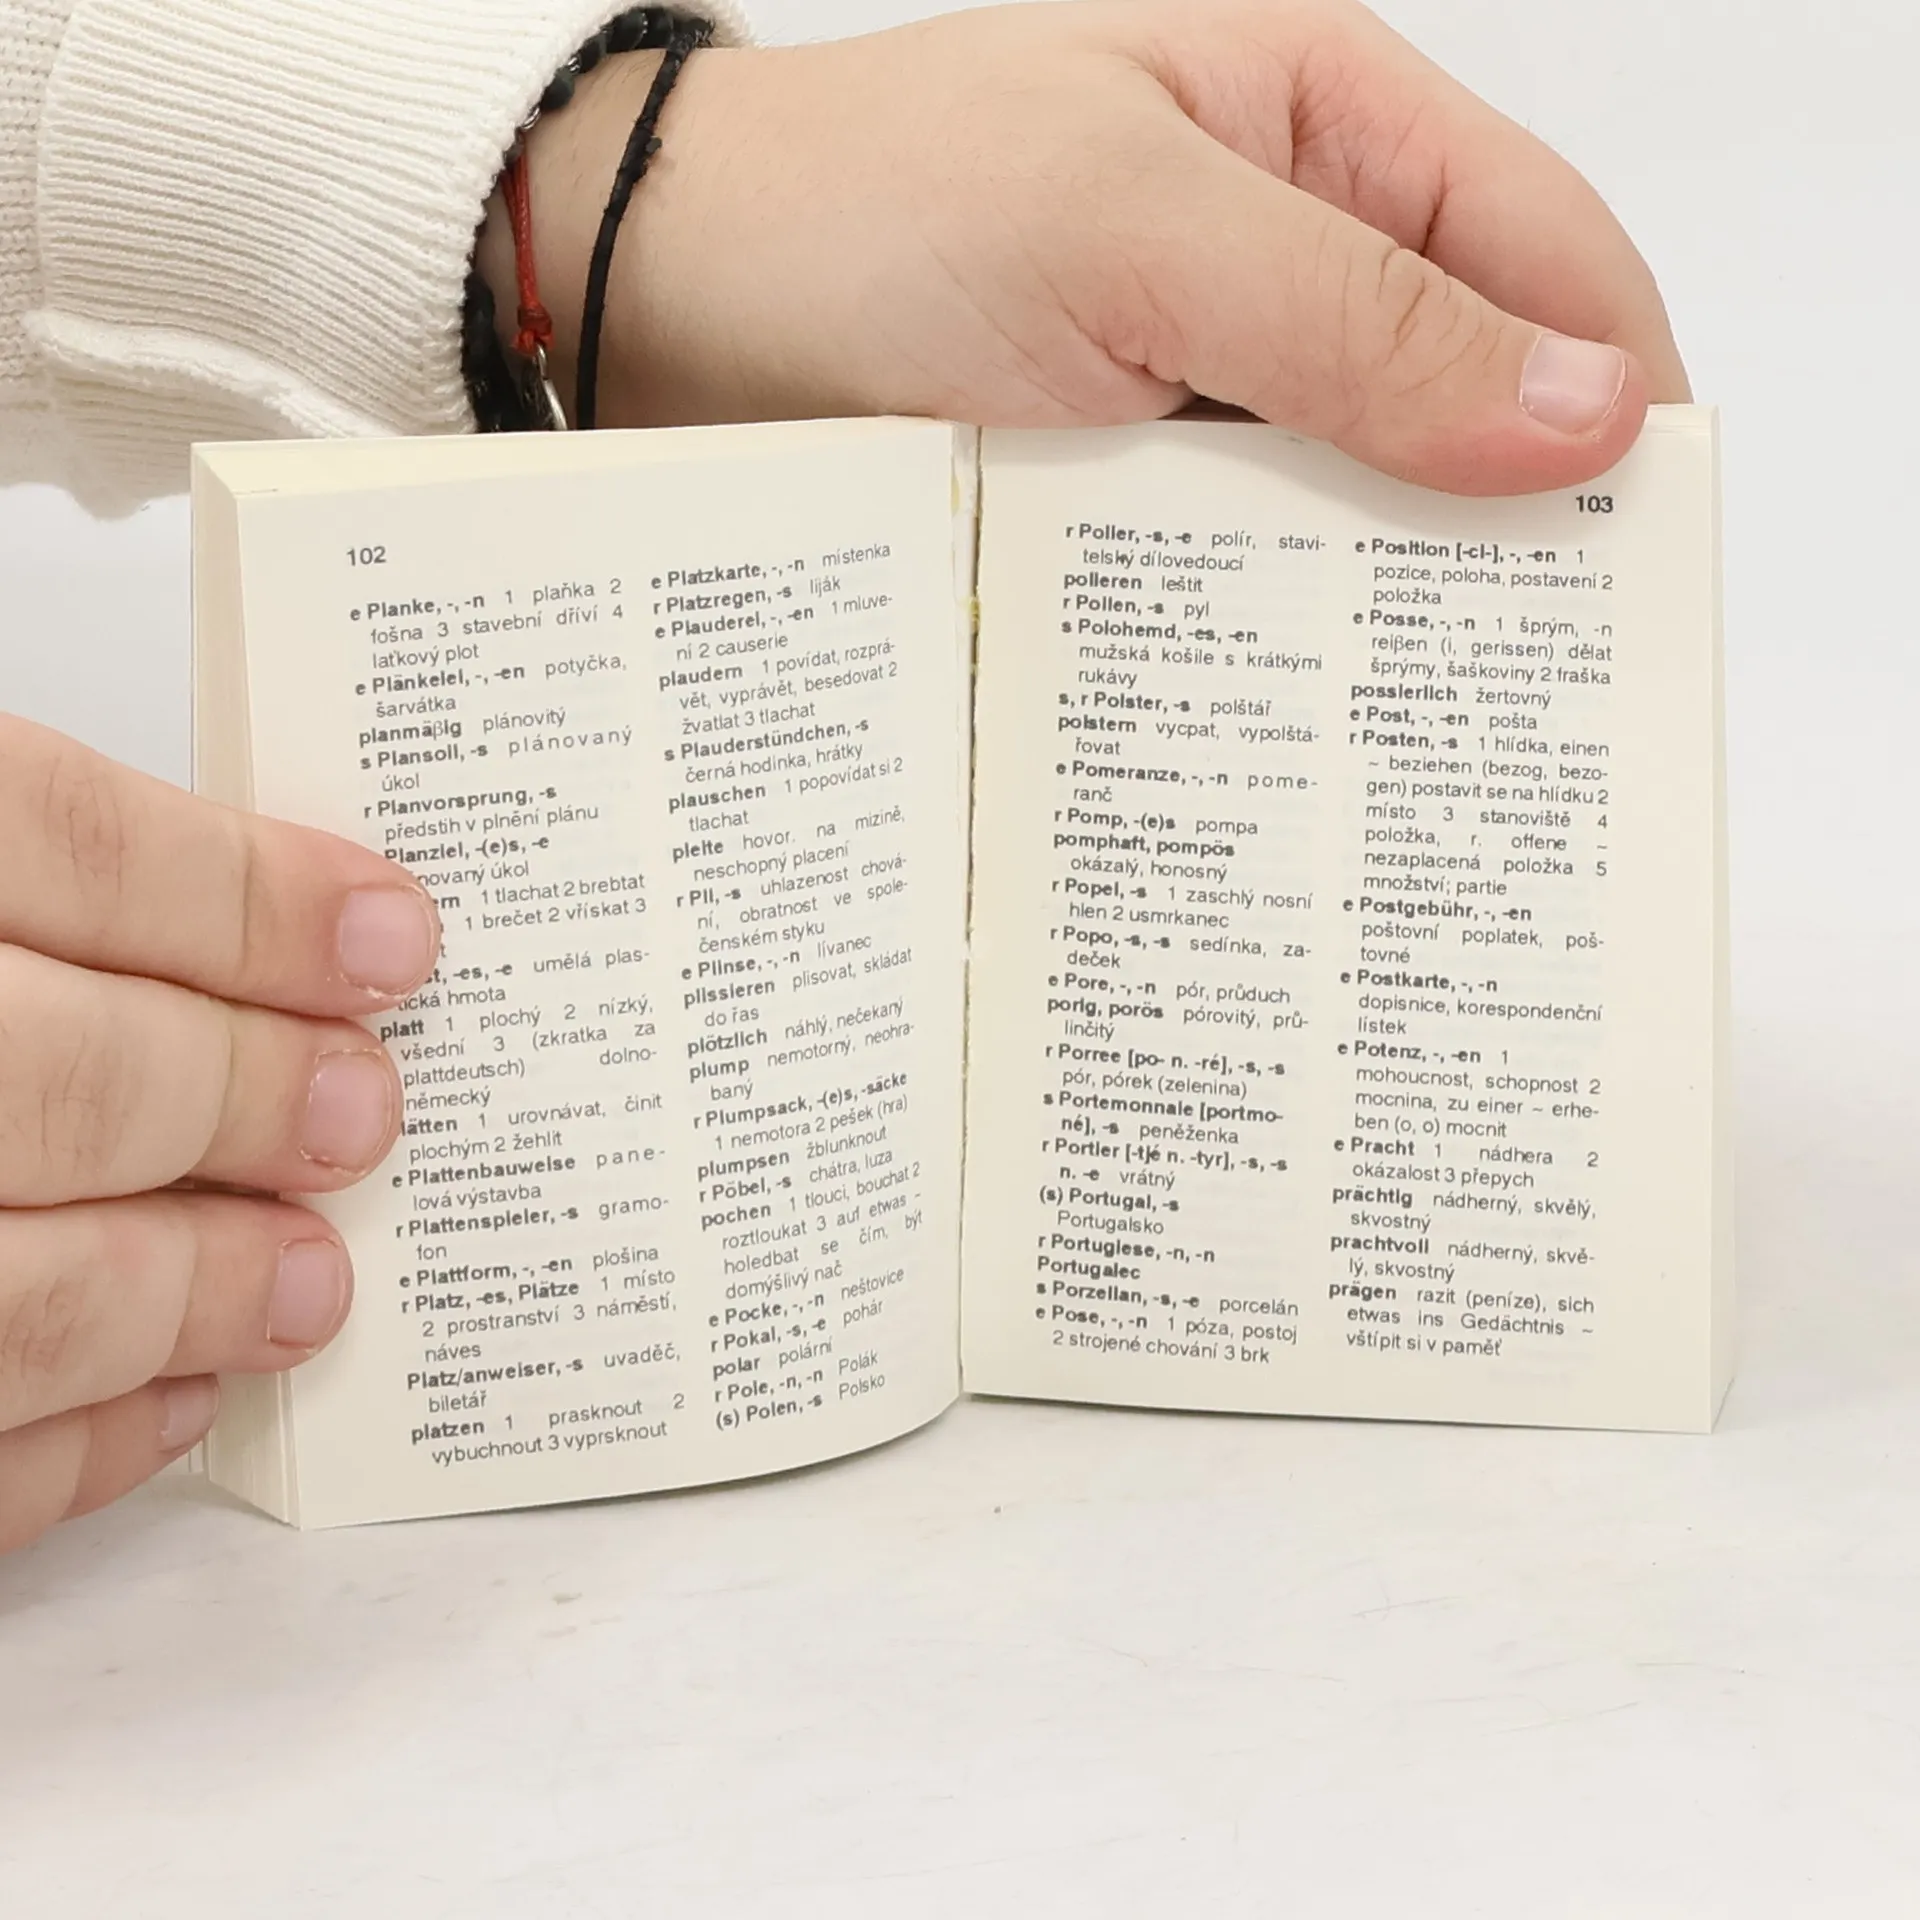 102
e Planke, -, -n 1 plaňka 2
fošna 3 stavební dříví 4
laťkový plot
e Plänkelei, -, -en potyčka,
šarvátka
planmäßig plánovitý
s Plansoll, -s plánovaný
úkol
r Planvorsprung, -s
předstih v plnění plánu
Planziel, -(e)s, -e
úkol
1 tlachat 2 brebtat
1 brečet 2 vřískat 3
-es, -e umělá plas-
tická hmota
platt 1 plochý 2 nízký,
všední 3 (zkratka za
plattdeutsch) dolno-
německý
1 urovnávat, činit
plochým 2 žehlit
e Plattenbauweise pane-
lová výstavba
r Plattenspieler, -s gramo-
fon
e Plattform, -, -en plošina
r Platz, -es, Plätze 1 místo
2 prostranství 3 náměstí,
náves
Platz/anweiser, -s uvaděč,
biletář
platzen 1 prasknout 2
vybuchnout 3 vyprsknout
e Platzkarte, -, -n místenka
r Platzregen, -s liják
e Plauderei, -, -en 1 mluve-
ní 2 causerie
plaudern 1 povídat, rozprá-
vět, vyprávět, besedovat 2
žvatlat 3 tlachat
s Plauderstündchen, -s
černá hodinka, hrátky
plauschen 1 popovídat si 2
tlachat
pleite hovor. na mizině,
neschopný placení
r Pli, -s uhlazenost chová-
ní, obratnost ve spole-
čenském styku
e Plinse, -, -n lívanec
plissieren plisovat, skládat
do řas
plötzlich náhlý, nečekaný
plump nemotorný, neohra-
baný
r Plumpsack, -(e)s, -säcke
1 nemotora 2 pešek (hra)
plumpsen žblunknout
r Pöbel, -s chátra, luza
pochen 1 tlouci, bouchat 2
roztloukat 3 auf etwas ~
holedbat se čím, být
domýšlivý nač
e Pocke, -, -n neštovice
r Pokal, -s, -e pohár
polar polární
r Pole, -n, -n Polák
(s) Polen, -s Polsko
103
r Polier, -s, -e polír, stavi-
telský dílovedoucí
polieren leštit
r Pollen, -s pyl
s Polohemd, -es, -en
mužská košile s krátkými
rukávy
s, r Polster, -s polštář
polstern vycpat, vypolštá-
řovat
e Pomeranze, -, -n pome-
ranč
r Pomp, -(e)s pompa
pomphaft, pompös
okázalý, honosný
r Popel, -s 1 zaschlý nosní
hlen 2 usmrkanec
r Popo, -s, -s sedínka, za-
deček
e Pore, -, -n pór, průduch
porig, porös pórovitý, prů-
linčitý
r Porree [po- n. -ré], -s, -s
pór, pórek (zelenina)
s Portemonnaie [portmo-
né], -s peněženka
r Portier [-tjé n. -tyr], -s, -s
n. -e vrátný
(s) Portugal, -s
Portugalsko
r Portugiese, -n, -n
Portugalec
s Porzellan, -s, -e porcelán
e Pose, -, -n 1 póza, postoj
2 strojené chování 3 brk
e Position [-ci-], -, -en 1
pozice, poloha, postavení 2
položka
e Posse, -, -n 1 šprým, -n
reißen (i, gerissen) dělat
šprýmy, šaškoviny 2 fraška
possierlich žertovný
e Post, -, -en pošta
r Posten, -s 1 hlídka, einen
~ beziehen (bezog, bezo-
gen) postavit se na hlídku 2
místo 3 stanoviště 4
položka, r. offene ~
nezaplacená položka 5
množství; partie
e Postgebühr, -, -en
poštovní poplatek, poš-
tovné
e Postkarte, -, -n
dopisnice, korespondenční
lístek
e Potenz, -, -en 1
mohoucnost, schopnost 2
mocnina, zu einer ~ erhe-
ben (o, o) mocnit
e Pracht 1 nádhera 2
okázalost 3 přepych
prächtig nádherný, skvělý,
skvostný
prachtvoll nádherný, skvě-
lý, skvostný
prägen razit (peníze), sich
etwas ins Gedächtnis ~
vštípit si v paměť